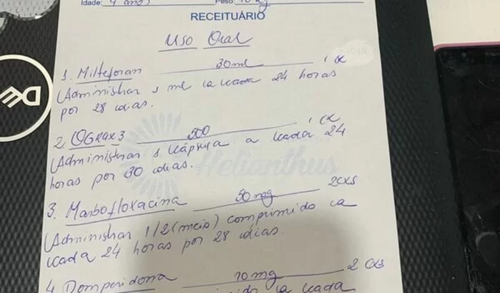 Idade: 4 anos Peso: 10 kg
RECEITUÁRIO
Uso Oral
1. Milteforan 30ml 1 cx
Administrar 1 ml a cada 24 horas
por 28 dias.
2. OGRAX3 500 1 cx
Administrar 1 cápsula a cada 24
horas por 30 dias.
Helianthus
3. Marbofloxacina 50mg 2cxs
Administrar 1/2 (meio) comprimido a
cada 24 horas por 28 dias.
4. Domperidona 10mg 2 cxs
a cada
DE